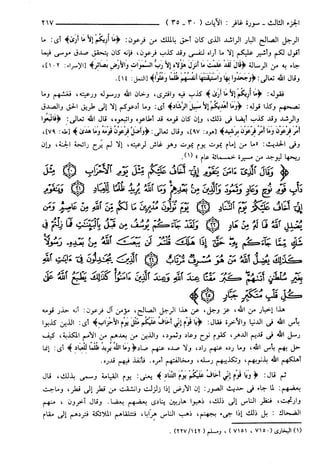 الجزء الثالث - سورة غافر : الآيات (٣٠ - ٣٥) ٢١٧
الرجل الصالح البار الراشد الذي كان أحق بالملك من فرعون : ﴿مَا أُرِيكُمْ إِلَّا مَا أَرَىٰ﴾ أي : ما
أقول لكم وأشير عليكم إلا ما أراه لنفسي وقد كذب فرعون، فإنه كان يتحقق صدق موسى فيما
جاء به من الرسالة ﴿قَالَ لَقَدْ عَلِمْتَ مَا أَنزَلَ هَٰؤُلَاءِ إِلَّا رَبُّ السَّمَاوَاتِ وَالْأَرْضِ بَصَائِرَ﴾ [الإسراء: ١٠٢]،
وقال الله تعالى: ﴿وَجَحَدُوا بِهَا وَاسْتَيْقَنَتْهَا أَنفُسُهُمْ ظُلْمًا وَعُلُوًّا﴾ [النمل: ١٤].
فقوله: ﴿مَا أُرِيكُمْ إِلَّا مَا أَرَىٰ﴾ كذب فيه وافترى، وخان الله ورسوله ورعيته، فغشهم وما
نصحهم وكذا قوله: ﴿وَمَا أَهْدِيكُمْ إِلَّا سَبِيلَ الرَّشَادِ﴾ أي: وما أدعوكم إلا إلى طريق الحق والصدق
والرشد وقد كذب أيضا في ذلك، وإن كان قومه قد أطاعوه واتبعوه، قال الله تعالى: ﴿فَاتَّبَعُوا
أَمْرَ فِرْعَوْنَ وَمَا أَمْرُ فِرْعَوْنَ بِرَشِيدٍ﴾ [هود: ٩٧]، وقال تعالى: ﴿وَأَضَلَّ فِرْعَوْنُ قَوْمَهُ وَمَا هَدَىٰ﴾ [طه: ٧٩]،
وفي الحديث: «ما من إمام يموت يوم يموت وهو غاش لرعيته، إلا لم يرح رائحة الجنة، وإن
ريحها ليوجد من مسيرة خمسمائة عام» (١).
وَقَالَ الَّذِي آمَنَ يَا قَوْمِ إِنِّي أَخَافُ عَلَيْكُم مِّثْلَ يَوْمِ الْأَحْزَابِ ۝ مِثْلَ
دَأْبِ قَوْمِ نُوحٍ وَعَادٍ وَثَمُودَ وَالَّذِينَ مِن بَعْدِهِمْ وَمَا اللَّهُ يُرِيدُ ظُلْمًا لِّلْعِبَادِ ۝ وَيَا قَوْمِ
إِنِّي أَخَافُ عَلَيْكُمْ يَوْمَ التَّنَادِ ۝ يَوْمَ تُوَلُّونَ مُدْبِرِينَ مَا لَكُم مِّنَ اللَّهِ مِنْ عَاصِمٍ وَمَن
يُضْلِلِ اللَّهُ فَمَا لَهُ مِنْ هَادٍ ۝ وَلَقَدْ جَاءَكُمْ يُوسُفُ مِن قَبْلُ بِالْبَيِّنَاتِ فَمَا زِلْتُمْ فِي
شَكٍّ مِّمَّا جَاءَكُم بِهِ حَتَّىٰ إِذَا هَلَكَ قُلْتُمْ لَن يَبْعَثَ اللَّهُ مِن بَعْدِهِ رَسُولًا
كَذَٰلِكَ يُضِلُّ اللَّهُ مَنْ هُوَ مُسْرِفٌ مُّرْتَابٌ ۝ الَّذِينَ يُجَادِلُونَ فِي آيَاتِ اللَّهِ
بِغَيْرِ سُلْطَانٍ أَتَاهُمْ كَبُرَ مَقْتًا عِندَ اللَّهِ وَعِندَ الَّذِينَ آمَنُوا كَذَٰلِكَ يَطْبَعُ اللَّهُ عَلَىٰ
كُلِّ قَلْبِ مُتَكَبِّرٍ جَبَّارٍ ۝
هذا إخبار من الله، عز وجل، عن هذا الرجل الصالح، مؤمن آل فرعون: أنه حذر قومه
بأس الله في الدنيا والآخرة فقال: ﴿يَا قَوْمِ إِنِّي أَخَافُ عَلَيْكُم مِّثْلَ يَوْمِ الْأَحْزَابِ﴾ أي: الذين كذبوا
رسل الله في قديم الدهر، كقوم نوح وعاد وثمود، والذين من بعدهم من الأمم المكذبة، كيف
حل بهم بأس الله، وما رده عنهم راد، ولا صده عنهم صاد ﴿وَمَا اللَّهُ يُرِيدُ ظُلْمًا لِّلْعِبَادِ﴾ أي: إنما
أهلكهم الله بذنوبهم، وتكذيبهم رسله، ومخالفتهم أمره. فأنفذ فيهم قدره.
ثم قال: ﴿وَيَا قَوْمِ إِنِّي أَخَافُ عَلَيْكُمْ يَوْمَ التَّنَادِ﴾ يعني: يوم القيامة وسمي بذلك، قال
بعضهم: لما جاء في حديث الصور: إن الأرض إذا زلزلت وانشقت من قطر إلى قطر، وماجت
وارتجت، فنظر الناس إلى ذلك، ذهبوا هاربين ينادي بعضهم بعضا. وقال آخرون، منهم
الضحاك : بل ذلك إذا جيء بجهنم، ذهب الناس هرابا، فتتلقاهم الملائكة فتردهم إلى مقام
(١) البخاري (٧١٥٠ ، ٧١٥١)، ومسلم (٢٢٧/١٤٢).